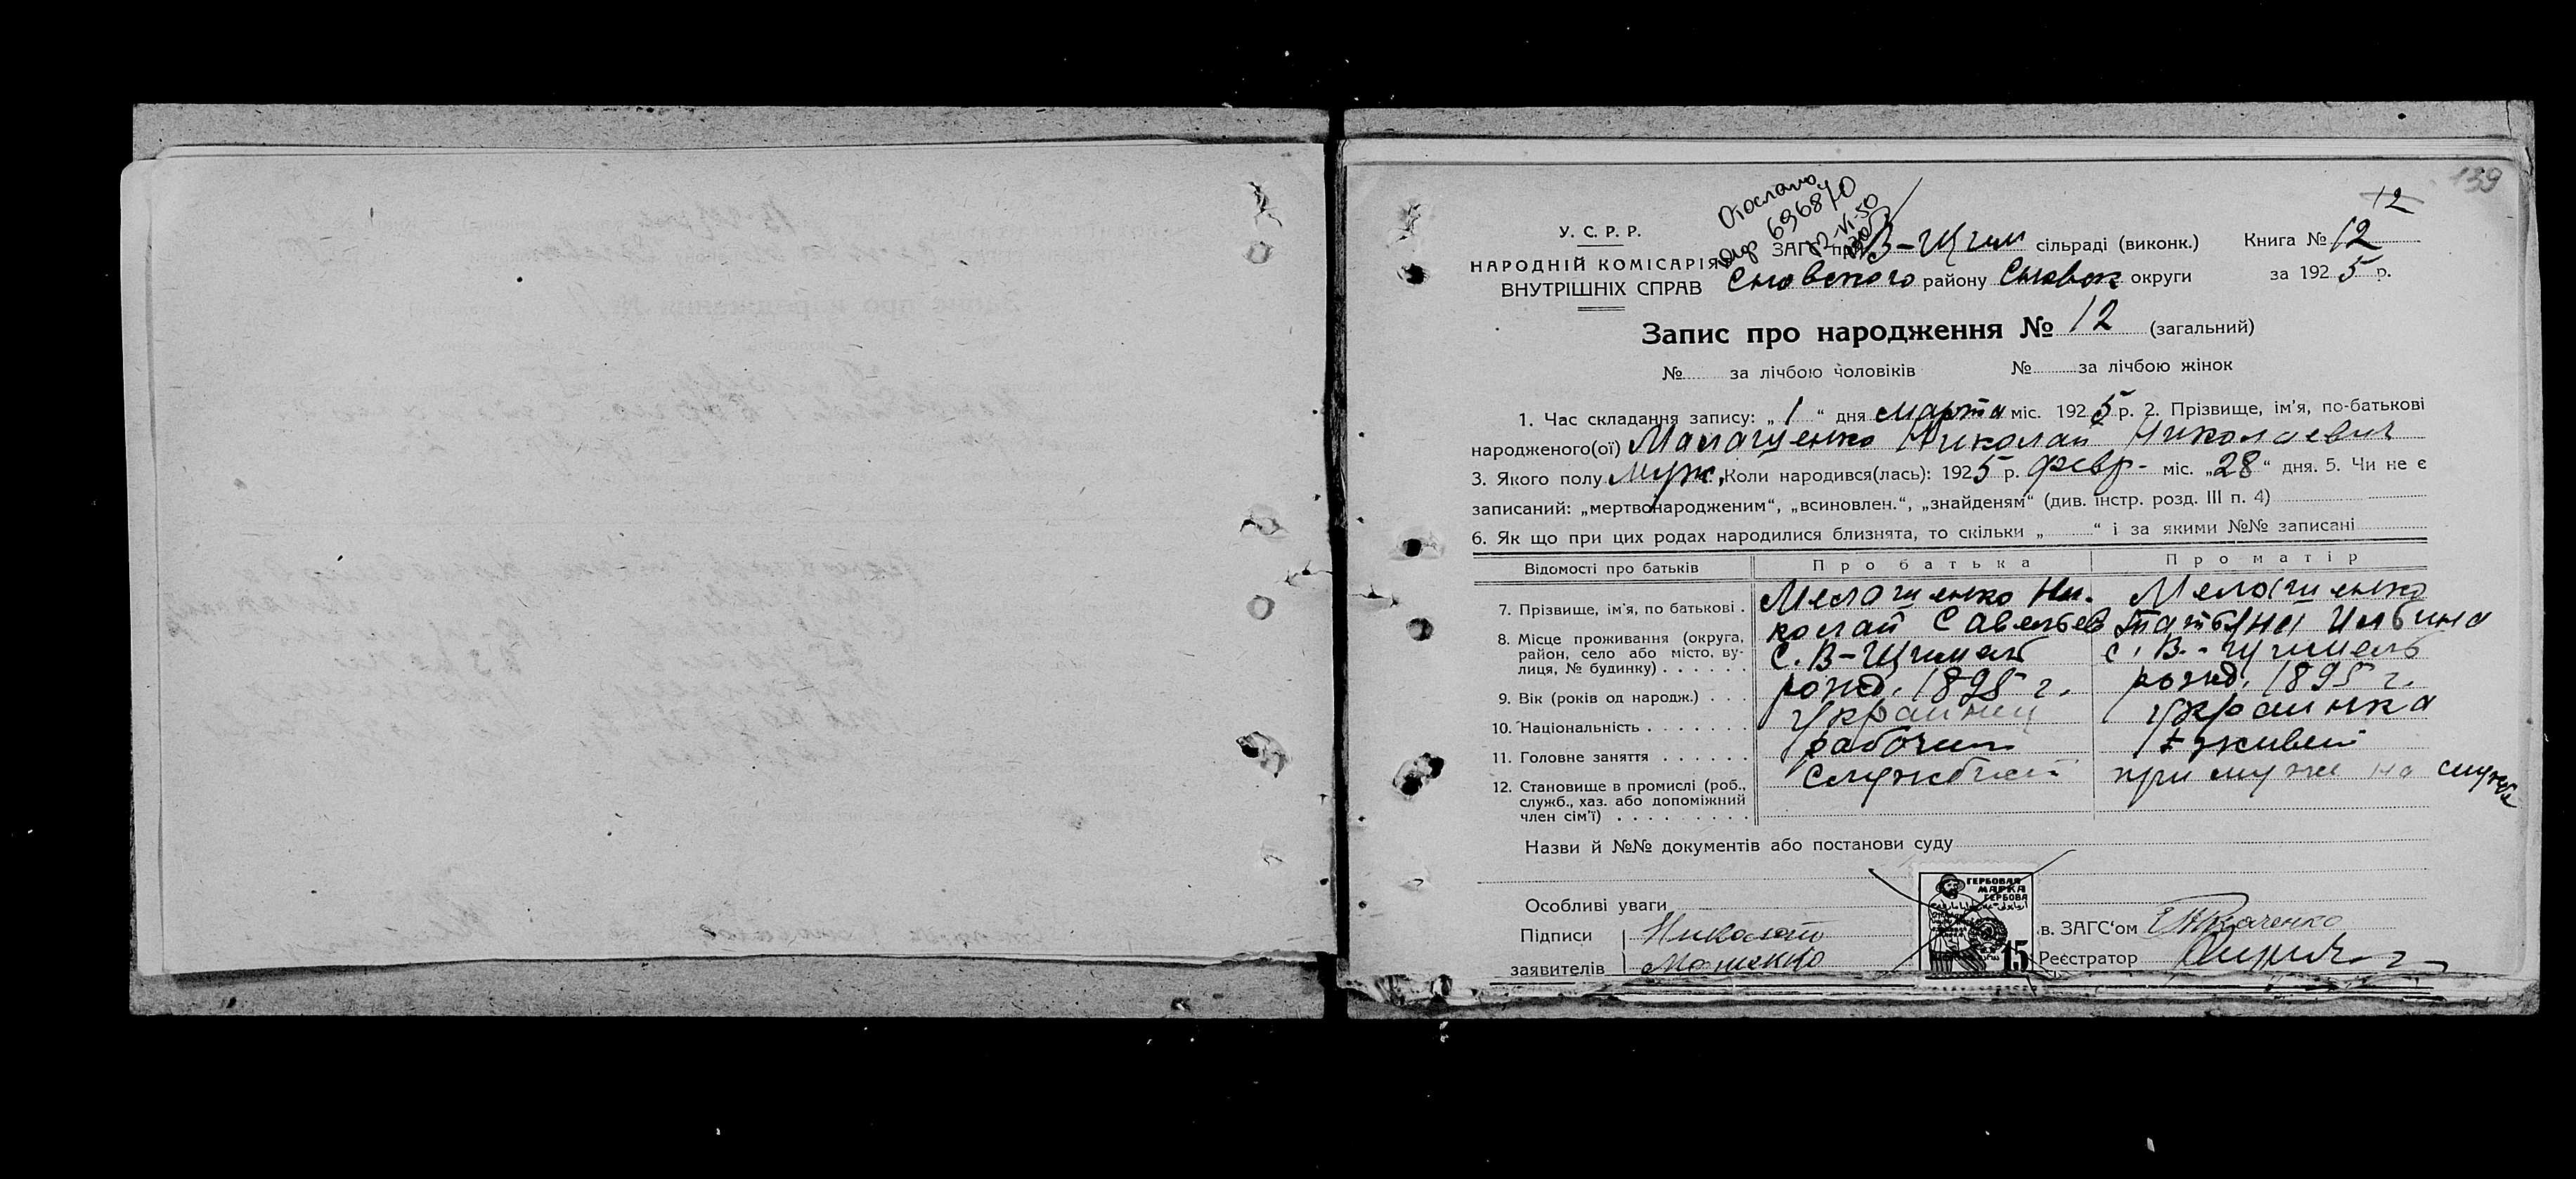 139
Отослано
12
У. С. Р. Р.
НАРОДНІЙ КОМІСАРІЯ
ВНУТРІШНІХ СПРАВ
ЗАГС при В-Щим сільраді (виконк.) Книга № 12
Сновского району Сновск округи за 1925 р.
Запис про народження № 12 (загальний)
№ за лічбою чоловіків № за лічбою жінок
1. Час складання запису: „1“ дня марта міс. 1925 р. 2. Прізвище, ім'я, по-батькові
народженого(ої) Малащенко Николай Николаевич
3. Якого полу муж, Коли народився(лась): 1925 р. февр- міс. „28“ дня. 5. Чи не є
записаний: „мертвонародженим“, „всиновлен.“, „знайденям“ (див. інстр. розд. III п. 4)
6. Як що при цих родах народилися близнята, то скільки „ “ і за якими №№ записані
Відомості про батьків Про батька Про матір
7. Прізвище, ім'я, по батькові . Ни- колай Савельев Татьяна Ильина
8. Місце проживання (округа, район, село або місто, вулиця, № будинку) . . . . . . с. В-Щимель с. В.-Щимель
9. Вік (років од народж.) . . . рожд. 1895 г. рожд. 1895 г.
10. Національність . . . . . . . украинец украинка
11. Головне заняття . . . . . . рабочий живет
12. Становище в промислі (роб., служб., хаз. або допоміжний член сім'ї) . . . . . . . . . при муже на службе
Назви й №№ документів або постанови суду
Особливі уваги
ГЕРБОВАЯ
МАРКА
ГЕРБОВА
15
Підписи Николай
заявителів
в. ЗАГС'ом Ткаченко
Реєстратор